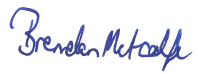 Brendan Metcalfe